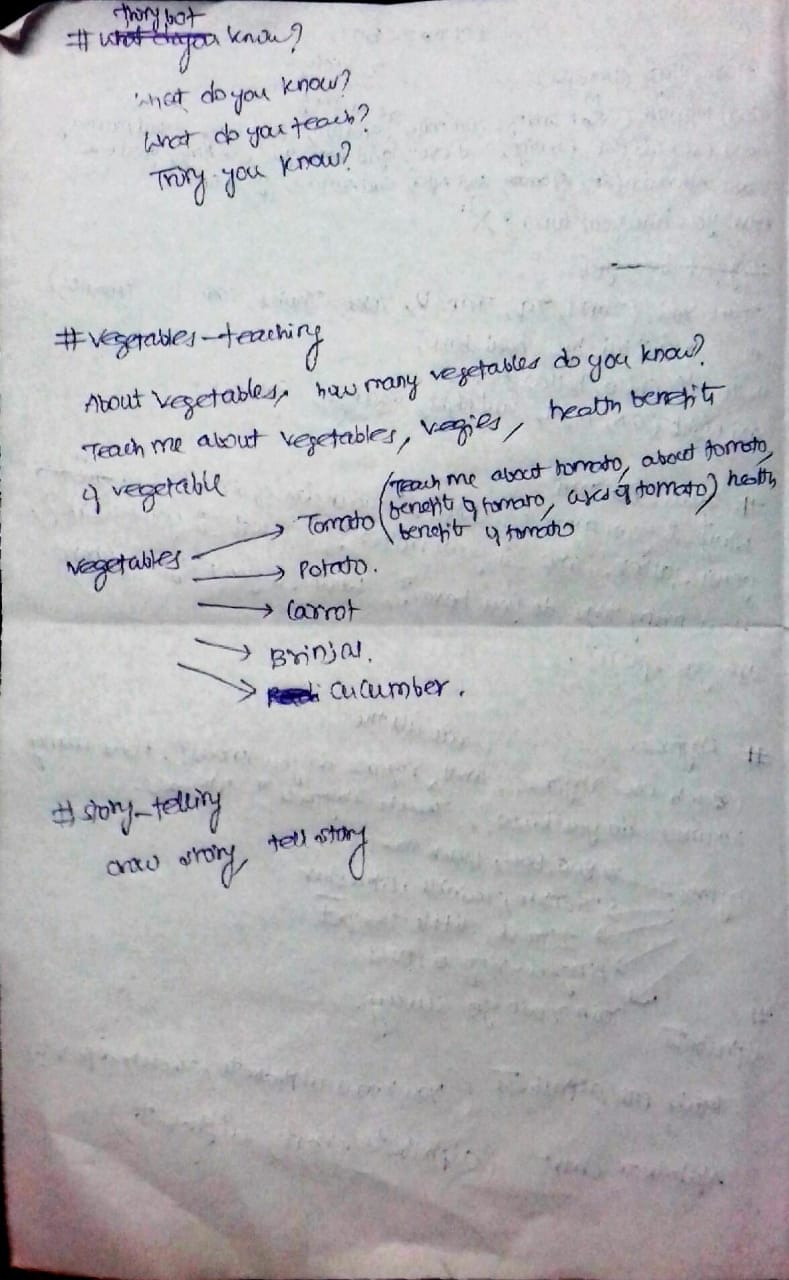 Thiry bot
# know?
What do you know?
What do you teach?
Thiry you know?
# vegetables-teaching
About vegetables, how many vegetables do you know?
Teach me about vegetables, vegies, health benefits
of vegetable
vegetables
Tomato (Teach me about tomato, about tomato,
benefit of tomato, uses of tomato) health
benefit of tomato
Potato.
Carrot
Brinjal.
Cucumber.
# story-telling
story, tell story